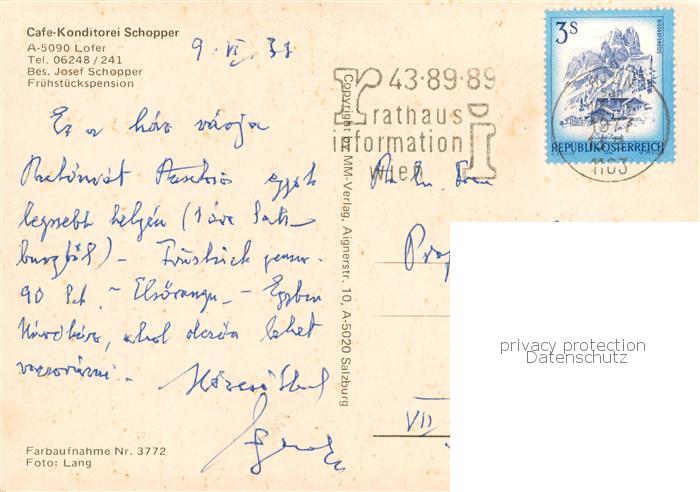 Cafe-Konditorei Schopper
A-5090 Lofer
Tel. 06248/241
Bes. Josef Schopper
Frühstückspension
9. VI.
Ez a ház várja
egyik
legszebb helyén (1 óra Salz-
burgtól) - Frühstück pension.
90 Sch. - Elsőrangú - Egyben
Kávéház, ahol olcsón lehet
vacsorázni. -
Farbaufnahme Nr. 3772
Foto: Lang
Copyright by MM-Verlag, Aignerstr. 10, A-5020 Salzburg
43·89·89
rathaus
information
wien
ri
3S
REPUBLIK ÖSTERREICH
1103
Prof
VII
privacy protection
Datenschutz